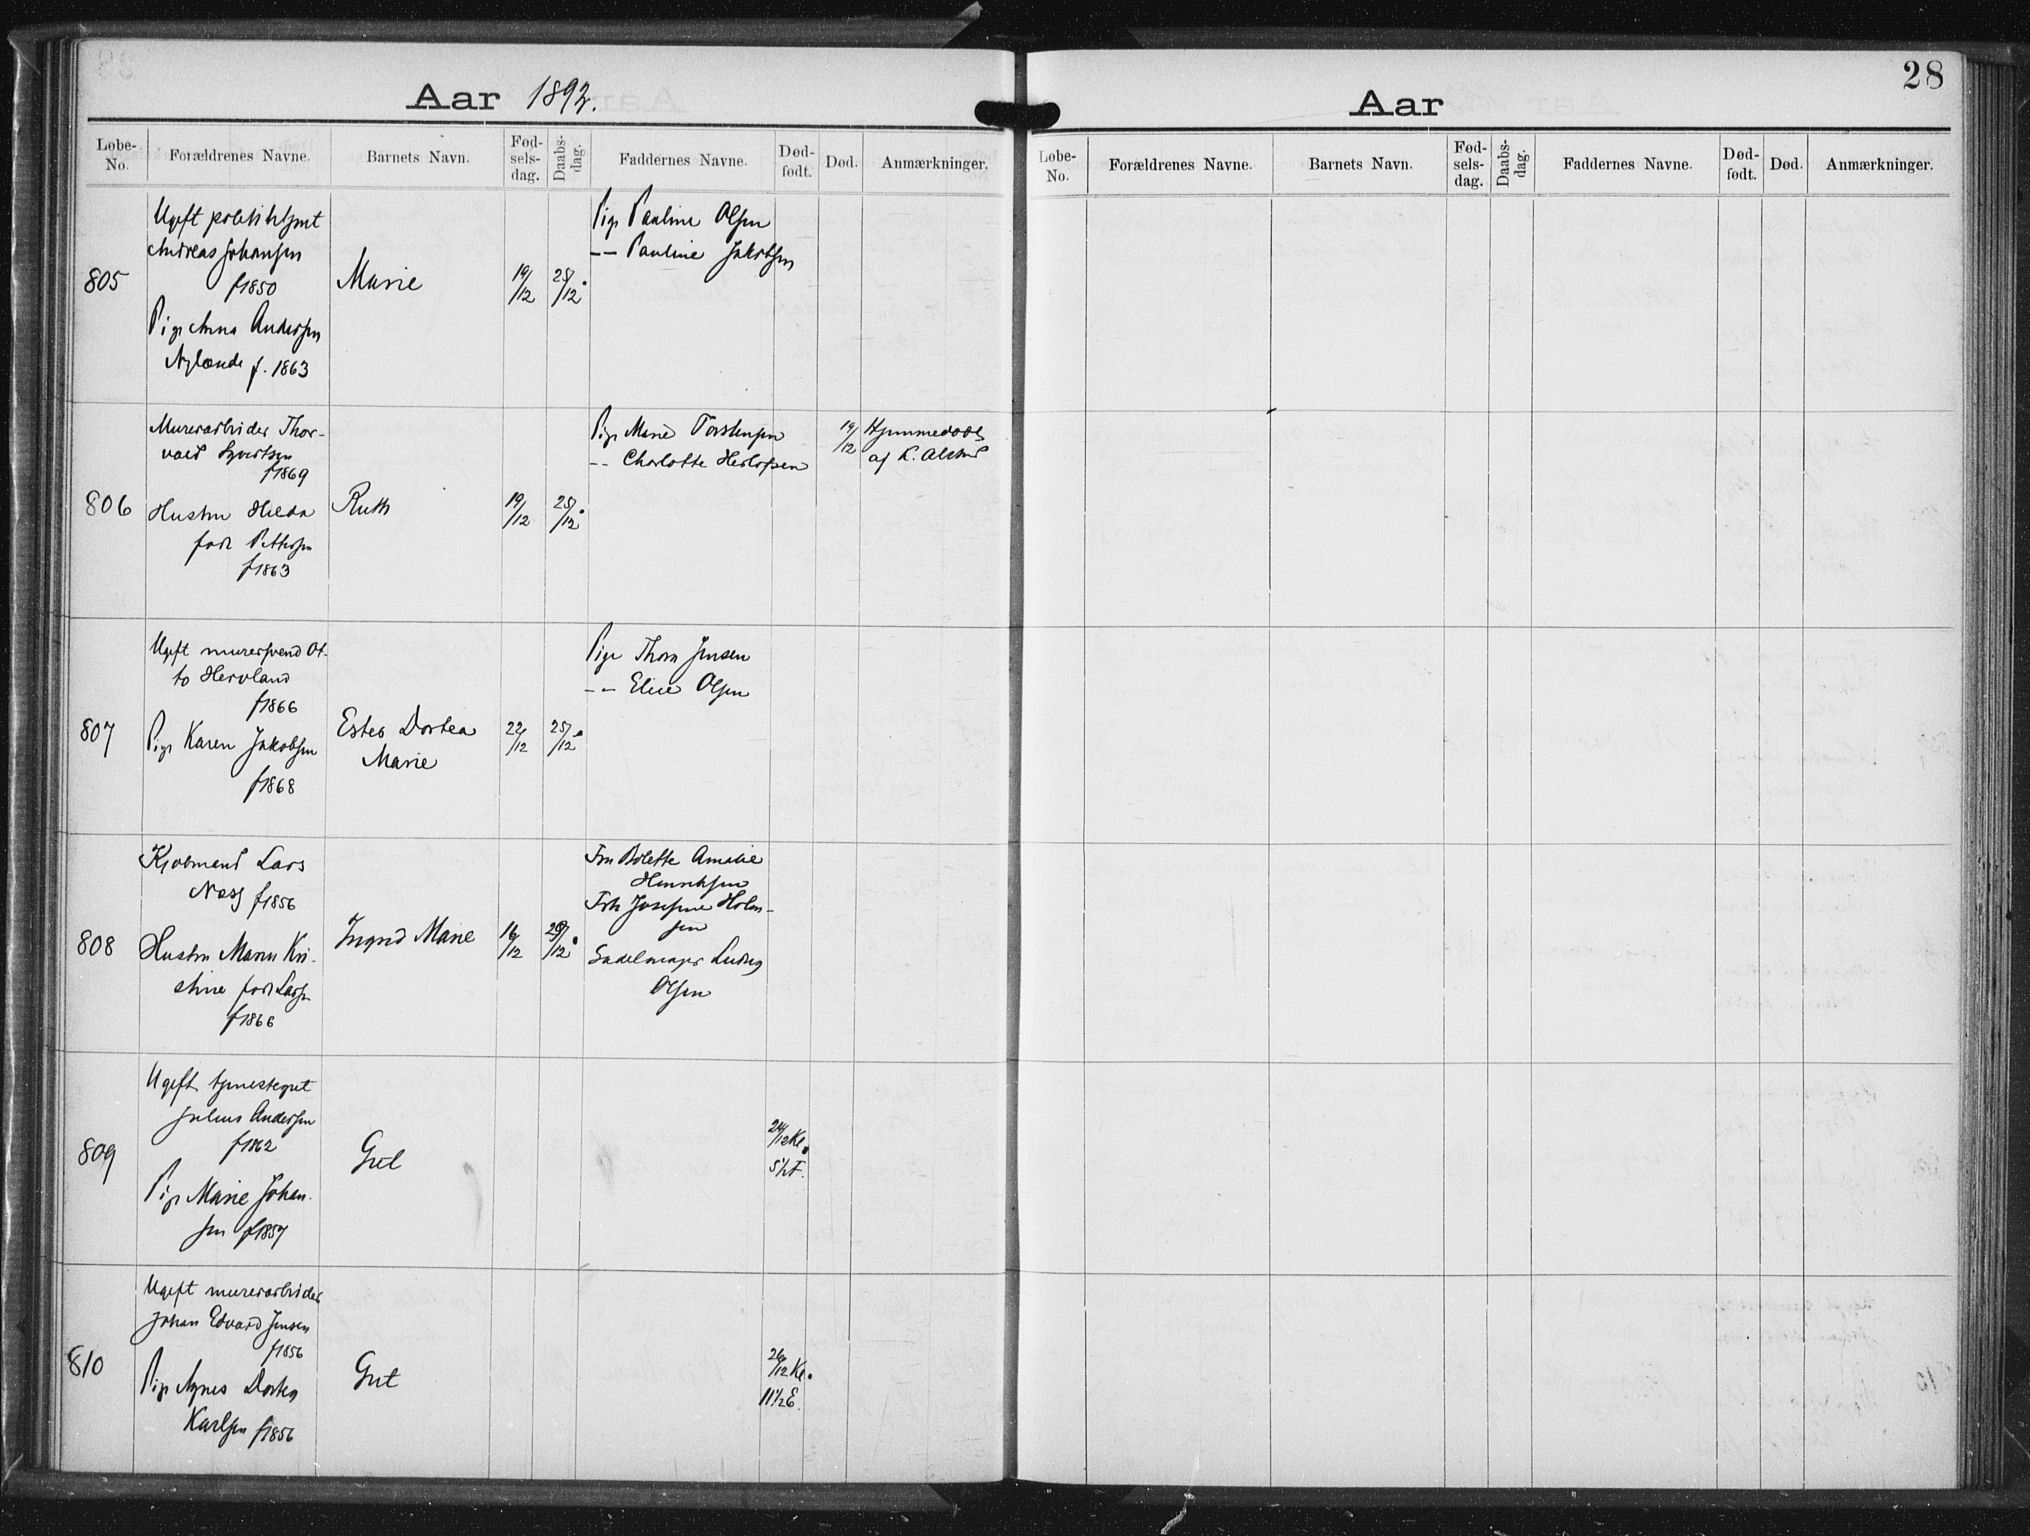 Aar 1892.
Løbe-No.
Forældrenes Navne.
Barnets Navn.
Fød-sels-dag.
Daabs-dag.
Faddernes Navne.
Død-født.
Død.
Anmærkninger.
805
Ugift
Andreas Johansen
f1850
Pige Anna Andersen
Nylænde f. 1863
Marie
19/12
25/12.
Pige Pauline Olsen
-- Pauline Jakobsen
806
Murerarbeider Thor-
vald Syvertsen
f1869
Hustru Hilda
født Pettersen
f1863
Ruth
19/12
25/12.
Pige Marie Torstensen
-- Charlotte Herlofsen
19/12
Hjemmedøbt
af K. Alstad
807
Ugift murersvend Ot-
to Hervland
f1866
Pige Karen Jakobsen
f1868
Ester Dortea
Marie
22/12
25/12.
Pige Thora Jensen
-- Elise Olsen
808
Kjøbmand Lars
Næss f1856
Hustru Maren Kri-
stine født Larsen
f1866
Ingrid Marie
16/12
29/12.
Fru Bolette Amalie
Henriksen
Frk Josefine Holm-
sen
Sadelmager Ludvig
Olsen
809
Ugift tjenestegut
Julius Andersen
f1862
Pige Marie Johan-
sen f1857
Gut
24/12 Kl.
5½ F.
810
Ugift murerarbeider
Johan Edvard Jensen
f1856
Pige Agnes Dortea
Karlsen f1856
Gut
26/12 Kl.
11½ E.
28
Aar
Løbe-No.
Forældrenes Navne.
Barnets Navn.
Fød-sels-dag.
Daabs-dag.
Faddernes Navne.
Død-født.
Død.
Anmærkninger.